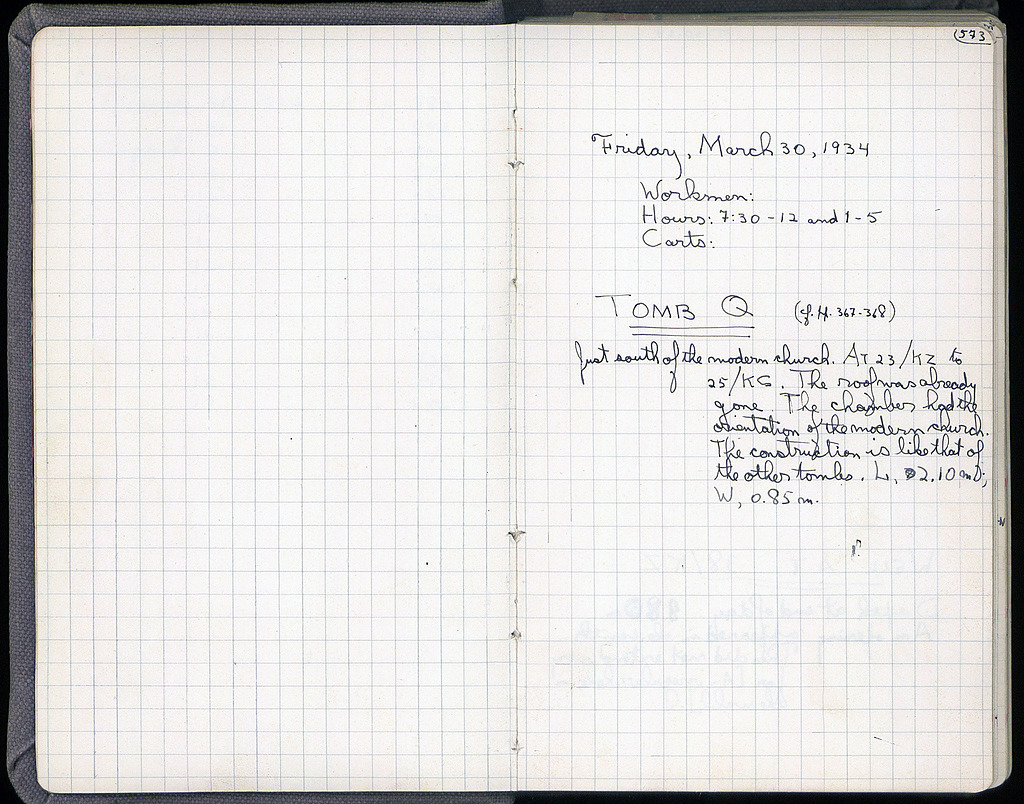 573
Friday, March 30, 1934
Workmen:
Hours: 7:30 - 12 and 1 - 5
Carts:
TOMB Q (cf. H. 367-368)
Just south of the modern church. At 23/KZ to
25/KG. The roof was already
gone. The chamber had the
orientation of the modern church.
The construction is like that of
the other tombs. L, 2.10 m;
W, 0.85 m.